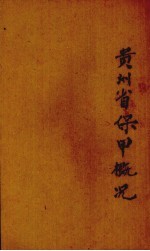 贵州省保甲概况